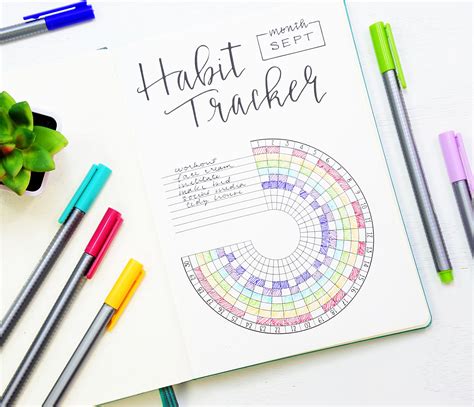 month
SEPT
Habit
Tracker
workout
face cream
meditate
make bed
social media
tidy house
1 2 3 4 5